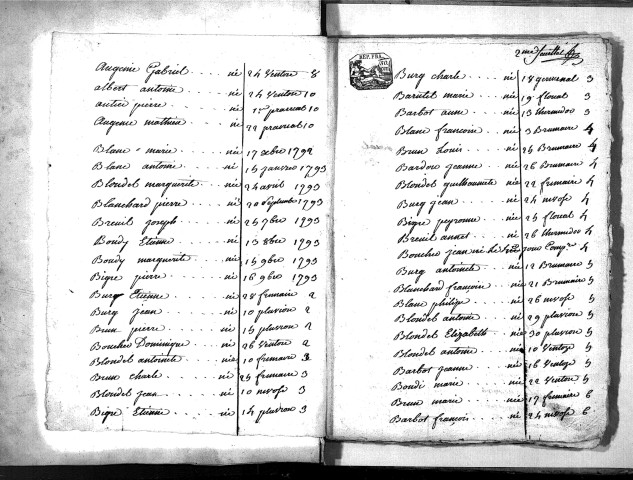 Augenie Gabriel né 24 ventose 8
albert antoine né 24 ventose 10
autier pierre né 1er prairial 10
Augenie mathieu né 22 prairial 10
Blanc marie né 17 8bre 1792
Blanc antoine né 15 janvier 1793
Blondel marguerite né 24 avril 1793
Blanchard pierre né 20 septembre 1793
Breuil joseph né 25 7bre 1793
Boudy Etienne né 13 8bre 1793
Boudy marguerite né 15 9bre 1793
Bigre pierre né 16 9bre 1793
Burg Etienne né 28 frimaire 2
Burg jean né 10 pluviose 2
Brun pierre né 15 pluviose 2
Boucher Dominique né 26 ventose 2
Blondel antoinete née 10 frimaire 3
Brun charle né 25 frimaire 3
Blondel jean né 10 nivose 3
Bigre Etienne né 14 pluviose 3
2me feuillet
REP. FRA.
Burg charle né 18 3
marie né 19 floreal 3
Barbot anne né 13 thermidor 3
Blanc francois né 3 Brumaire 4
Brun Louis né 25 Brumaire 4
Bardou jeanne né 26 Brumaire 4
Blondel guilhaumete né 22 frimaire 4
Burg jean né 24 nivose 4
Bigre peyronne né 25 floreal 4
Breuil annet né 26 thermidor 4
Boucher jean né le 4
Burg antoinete né 12 Brumaire 5
Blanchard françois né 21 Brumaire 5
Blanc philipe né 26 nivose 5
Blondel antoine né 29 pluviose 5
Blondel Elizabeth né 30 pluviose 5
Blondel antoine né 10 ventose 5
Barbot jeanne né 16 ventose 5
Boudi marie né 22 ventose 5
Brun marie né 17 frimaire 6
Barbot françois né 24 nivose 6